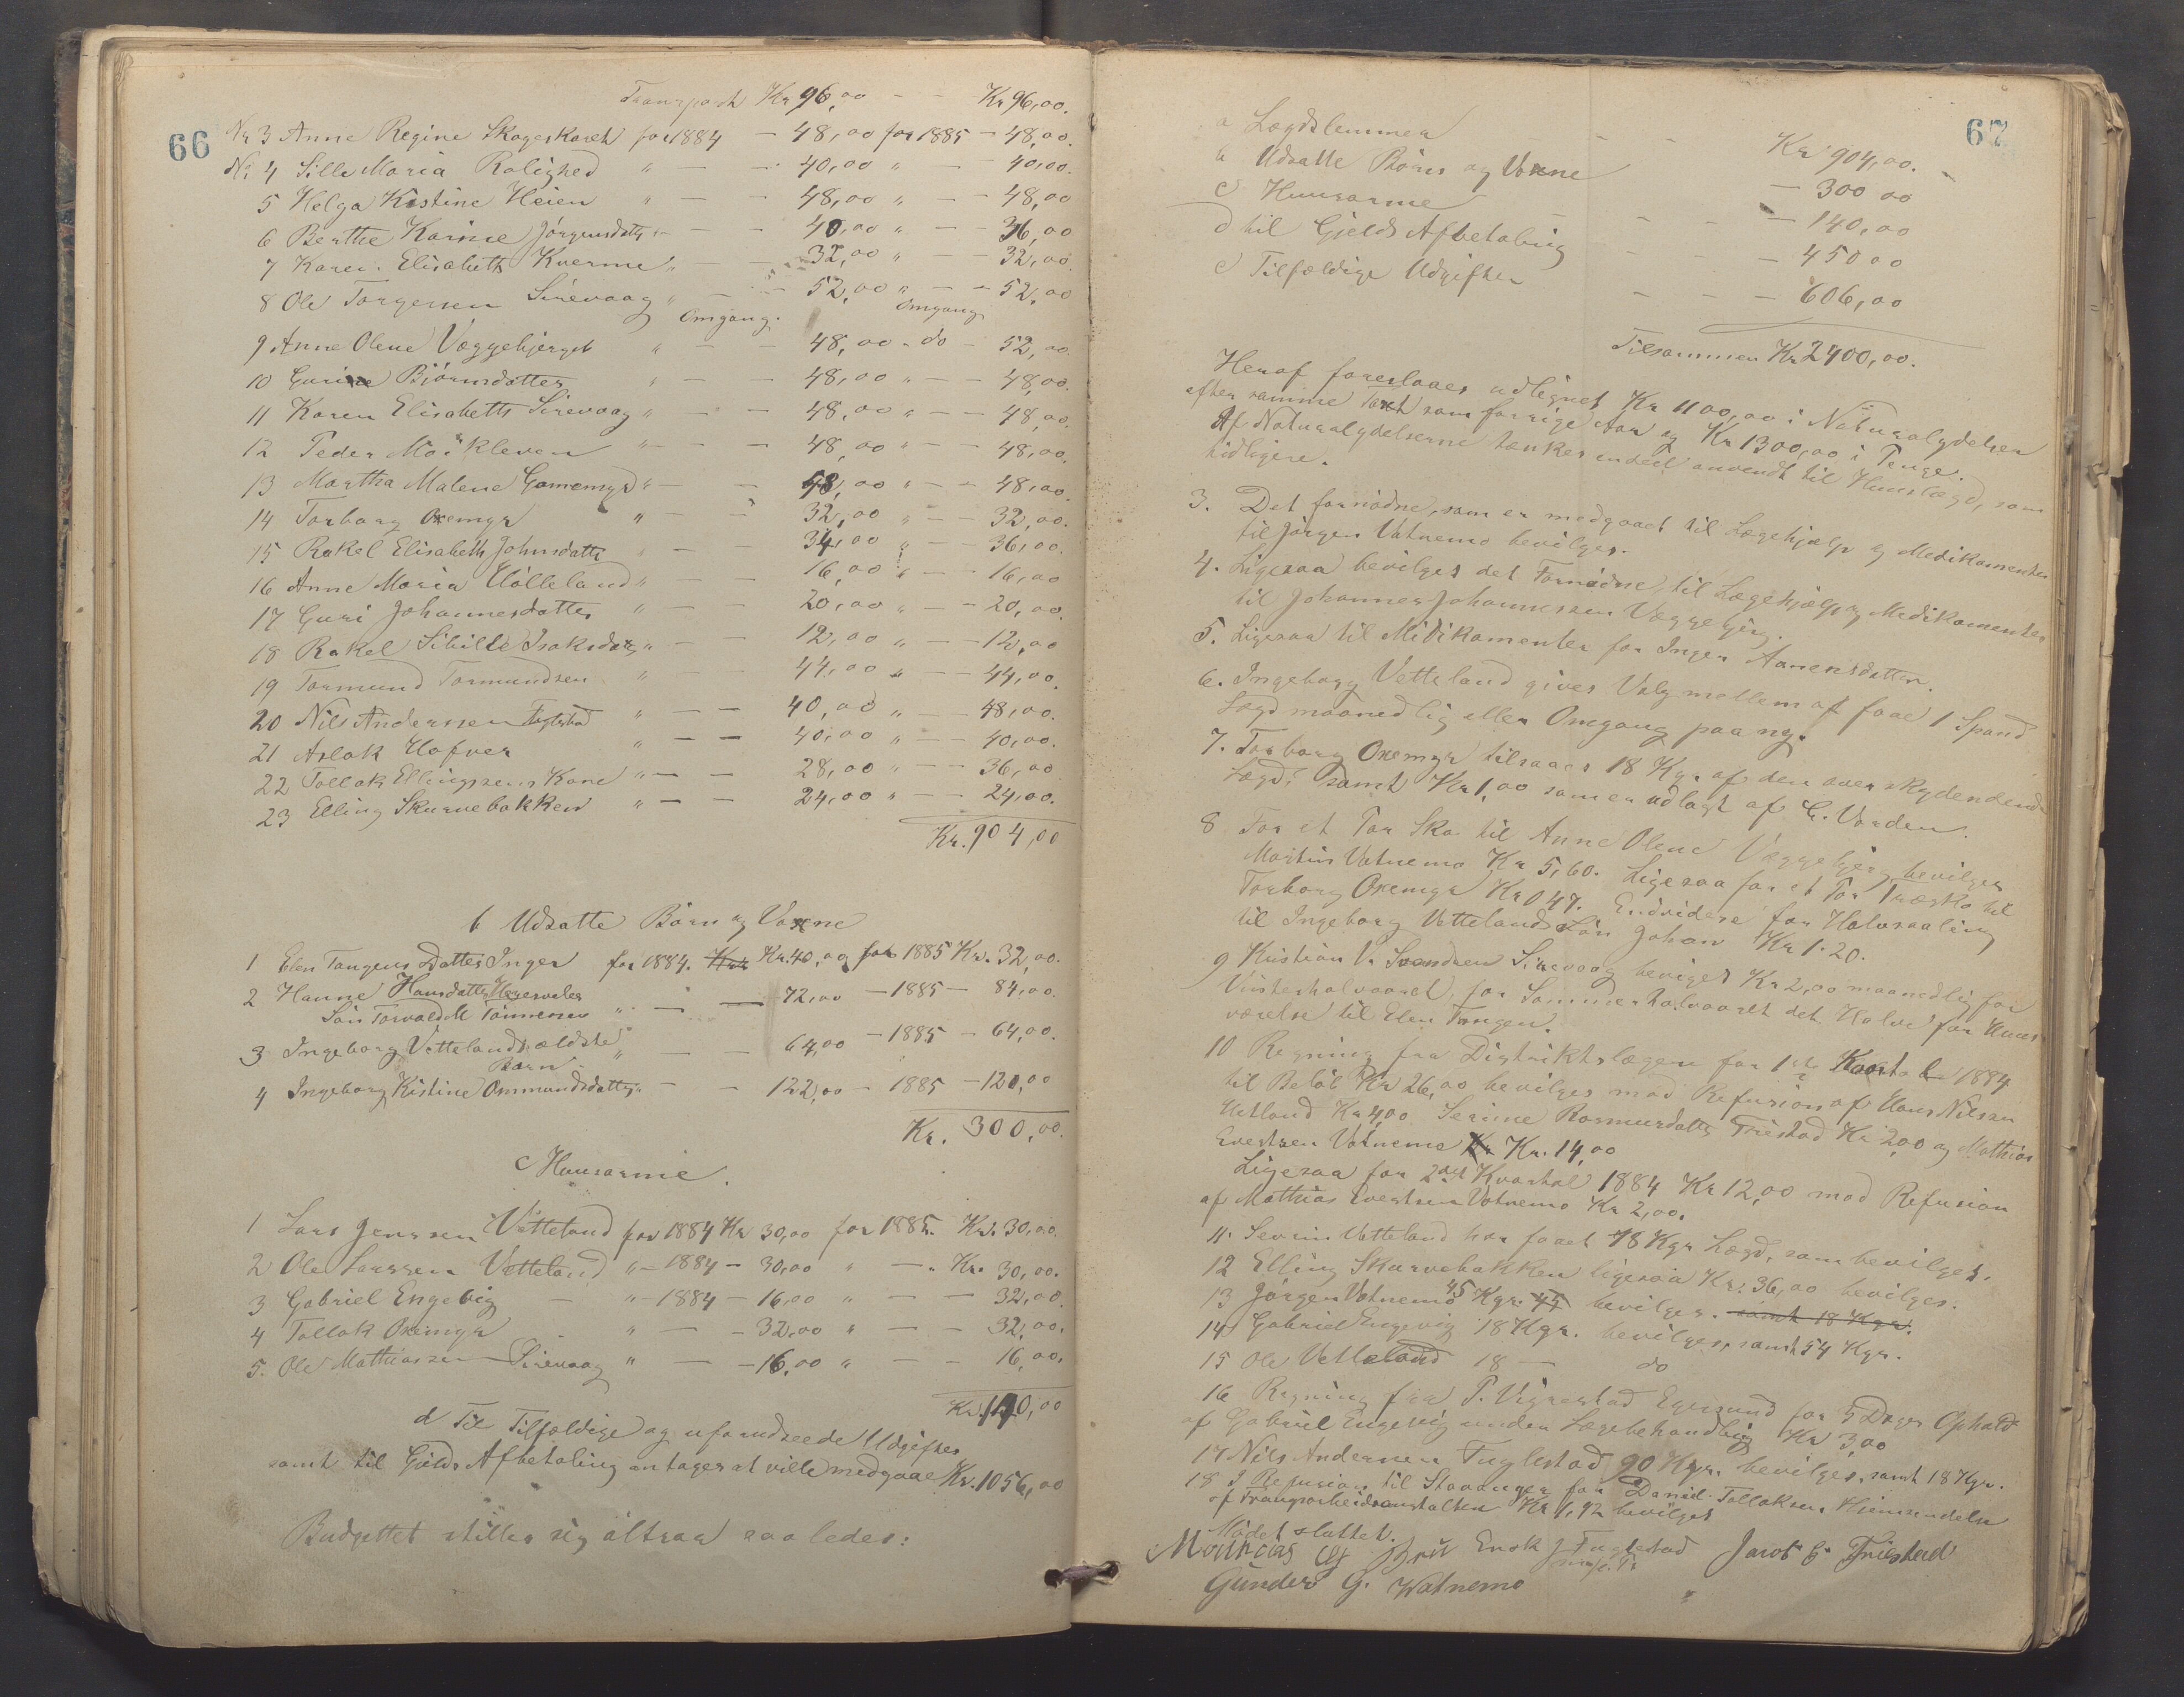 66
Transport Kr 96,00 - - Kr 96,00.
Nr 3 Anne Regine Skogeskaret for 1884 - 48,00 for 1885 - 48,00.
Nr 4 Sille Maria Rolighed " - - 40,00 " - 40,00.
5 Helga Kristine Heien " - - 48,00 " - - 48,00
6 Berthe Karine Jörgensdatter " - - 40,00 " - - 36,00
7 Karen Elisabeth Kverme " - - 32,00 " - - 32,00.
8 Ole Torgersen Sirevaag " - - 52,00 " - - 52,00
Omgang. Omgang
9 Anne Olene Væggebjerget " - - 48,00 - do - 52,00.
10 Gurine Björnsdatter " - - 48,00 " - - 48,00.
11 Karen Elisabeth Sirevaag " - - 48,00 " - - 48,00.
12 Peder Moikleven " - - 48,00 " - - 48,00.
13 Martha Malene Gomemyr " - - 48,00 " - - 48,00.
14 Torborg Oxemyr " - - 32,00 " - - 32,00.
15 Rakel Elisabeth Johnsdatter " - - 34,00 " - - 36,00.
16 Anne Maria Hölleland " - - 16,00 " - - 16,00
17 Guri Johannesdatter " - - 20,00 " - - 20,00.
18 Rakel Sibille Isaksdatter " - - 12,00 " - - 12,00
19 Tormund Tormundsen " - - 44,00 " - - 44,00.
20 Nils Andersen Fuglestad " - - 40,00 " - - 48,00.
21 Aslak Hafver " - - 40,00 " - - 40,00.
22 Tollak Ellingsens Kone " - - 28,00 " - - 36,00
23 Elling Skurvebakken " - - 24,00 " - - 24,00.
Kr. 904,00
b Udsatte Börn og Voxne
1 Elen Tangens Datter Inger for 1884. Kr. 40,00 for 1885 Kr. 32,00.
2 Hanne Hansdatter
Sön Torvald M Tönnesen " - - 72,00 - 1885 - 84,00.
3 Ingeborg Vettelands ældste " - - 64,00 - 1885 - 64,00.
Barn
4 Ingeborg Kistine Ommundsdatter " - - 122,00 - 1885 - 120,00
Kr. 300,00.
c Huusarme.
1 Lars Jenssen Vetteland for 1884 Kr 30,00 for 1885. Kr. 30,00.
2 Ole Larssen Vetteland " - 1884 - 30,00 " - " Kr. 30,00.
3 Gabriel Engevig - " - 1884 - 16,00 " - - 32,00.
4 Tollak Oxemyr " - - 32,00 " - - 32,00.
5. Ole Mathiassen Sirevaag " - - 16,00 " - - 16,00.
Kr 140,00
d Til Tilfældige og uforudseede Udgifter
samt til Gjelds Afbetaling antages at ville medgaae Kr. 1056,00
Budgettet stiller sig altsaa saaledes:
67
a Lægdslemmer - - Kr 904,00.
b Udsatte Börn og Voxne - 300 00
c Huusarme - - - 140,00
d til Gjelds Afbetaling - - - 450 00
e Tilfældige Udgifter - - - 606,00
Tilsammen Kr 2400,00.
Heraf foreslaaes udlignet Kr 1100,00 i Naturalydelser
efter samme Taxt som forrige Aar og Kr 1300,00 i Penge.
Af Naturalydelserne tænkes endeel anvendt til Huuslægd, som
tidligere.
3. Det fornödne, som er medgaaet til Lægehjælp og Medikamenter
til Jörgen Vatnemo bevilges.
4. Ligesaa bevilges det Fornödne til Lægehjælp og Medikamenter
til Johannes Johannessen Væggebjerg.
5. Ligesaa til Midikamenter for Inger Aanensdatter.
6. Ingeborg Vetteland gives Valg mellem at faae 1 Spand
Lægd maanedlig eller Omgang paa ny.
7. Torborg Oxemyr tilsaaes 18 Kgr. af den overskydendende
Lægd, samt Kr 1,00 som er udlagt af G. Varden.
8 For et Par Sko til Anne Olene Væggebjerg bevilges
Martin Vatnemo Kr 5,60. Ligesaa for et Par Træsko til
Torborg Oxemyr Kr 0 47. Endvidere for Halvsaaling
til Ingeborg Vettelands Sön Johan Kr 1.20.
9 Kristian V. Svendsen Sirevaag beviges Kr 2,00 maanedlig for
Vinterhalvaaret, for Sommerhalvaaret det Halve for Huus
værelse til Elen Tangen.
10 Regning fra Distriktslægen for 1ste Kvartal 1884
til Belöb Kr 26,00 bevilges mod Refusion af Hans Nilssen
Uetland Kr 4,00 Serine Rasmusdatter Triestad Kr 2,00 og Mathias
Evertsen Vatnemo Kr. 14,00
Ligesaa for 2det Kvartal 1884 Kr 12,00 mod Refusion
af Mathias Evertsen Vatnemo Kr 2,00.
11. Severin Vetteland har faaet 18 Kgr Lægd, som bevilges.
12 Elling Skurvebakken ligesaa Kr. 36,00 bevilges.
13 Jörgen Vatnemo 45 Kgr. bevilges. samt 18 Kgr.
14 Gabriel Engevig 18 Kgr. bevilges, samt 54 Kgr.
15 Ole Vetteland 18 - do
16 Regning fra P. Vigrestad Egersund for 5 Dages Ophold
af Gabriel Engevig under Lægebehandling Kr 3,00
17 Nils Andersen Fuglestad 90 Kgr. bevilges, samt 18 Kgr.
18 I Refusion til Stavanger for Daniel Tollaksens Hjemsendelse
af Tvangsarbeidsanstalten Kr 1,92 bevilges
Mödet sluttet.
Enok J Fuglestad Jacob G. Triestad
Gunder G. Watnemo